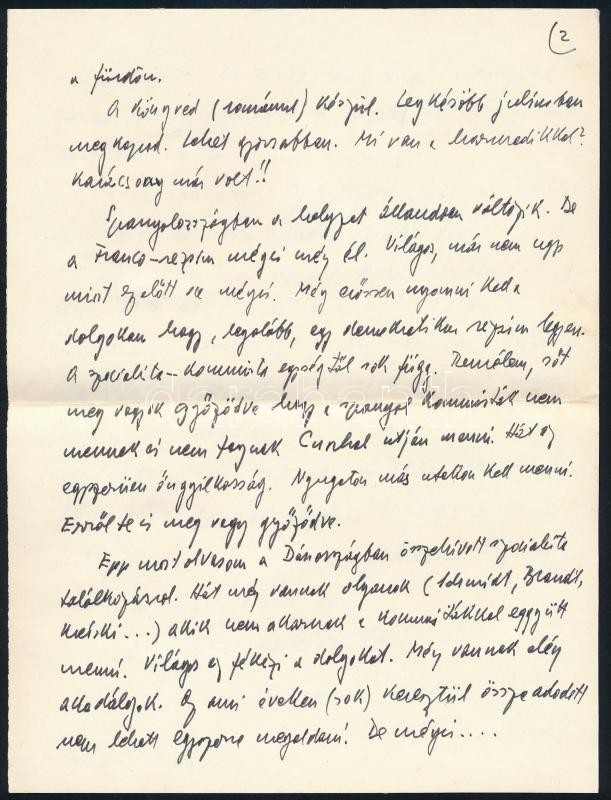 (2
a fürdőn.
A könyved (románul) készül. Legkésőbb júliusban
megkapod. Lehet gyorsabban. Mi van a harmadikkal?
Karácsony már volt!!
Spanyolországban a helyzet állandóan változik. De
a Franco-rezsim mégis még él. Világos, már nem úgy
mint ezelőtt de mégis. Még erőssen nyomni kell a
dolgokon hogy, legalább, egy demokratikus rezsim legyen.
A szocialista-kommunista egységtől sok függ. Remélem, sőt
meg vagyok győződve hogy a spanyol kommunisták nem
mennek és nem fognak Cunhal útján menni. Hát ez
egyszerüen öngyilkosság. Nyugaton más utakon kell menni.
Erről te is meg vagy győződve.
Épp most olvasom a Dániaországban összehívott szocialista
találkozásról. Hát még vannak olyanok (Schmidt, Brandt,
Kreiski...) akik nem akarnak a kommunistákkal eggyütt
menni. Világos ez fékezi a dolgokat. Még vannak elég
akadályok. Az ami éveken (sok) keresztül össze adódott
nem lehet egyszerre megoldani. De mégis....
darabanth